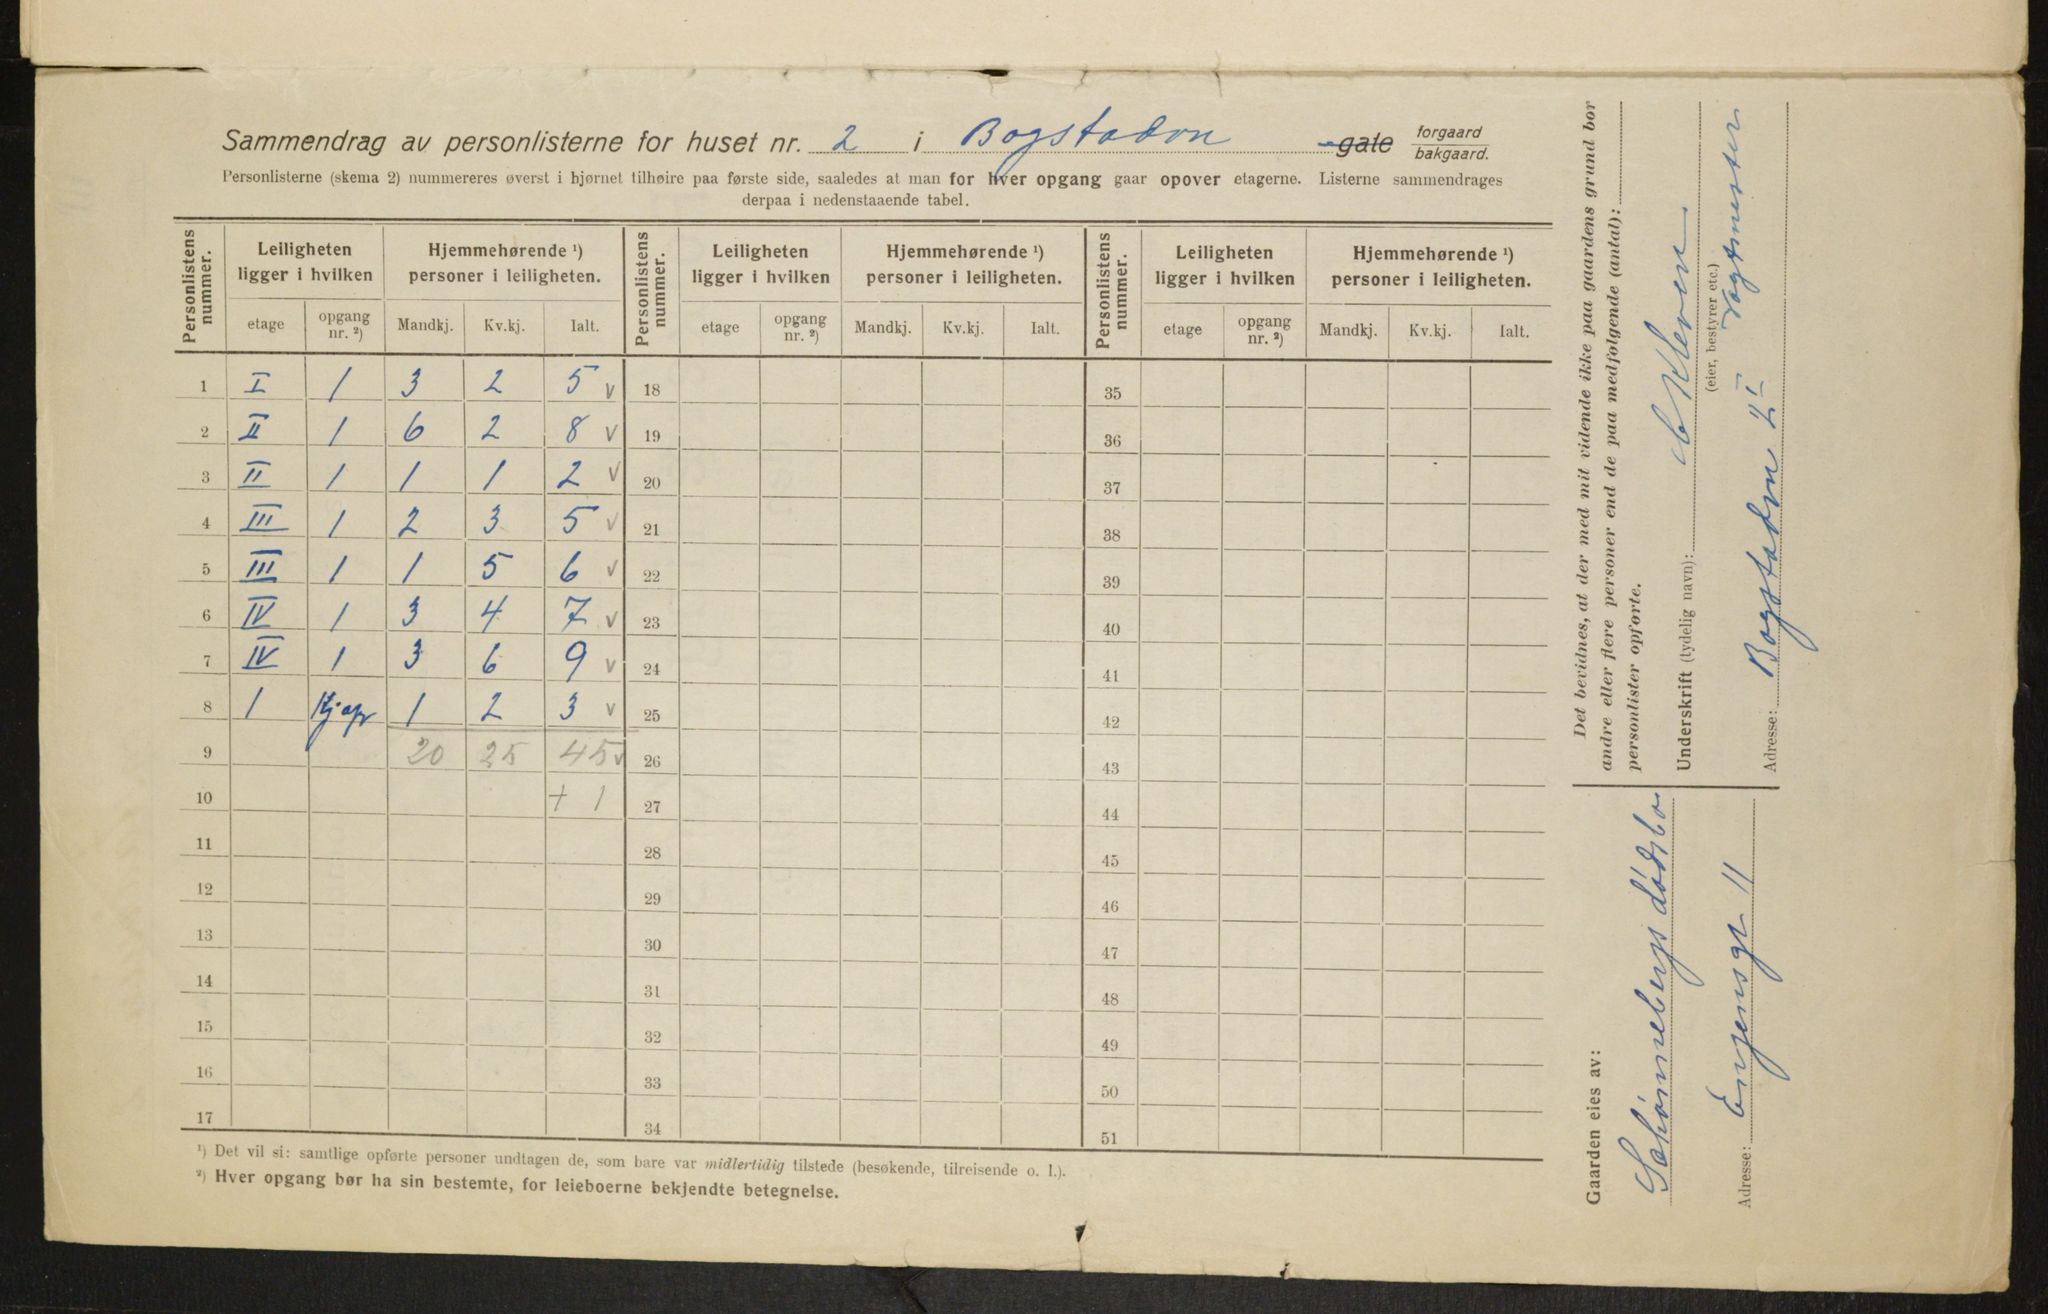 Sammendrag av personlisterne for huset nr. 2 i Bogstadvn -gate forgaard bakgaard.
Personlisterne (skema 2) nummereres øverst i hjørnet tilhøire paa første side, saaledes at man for hver opgang gaar opover etagerne. Listerne sammendrages
derpaa i nedenstaaende tabel.
Personlistens nummer. Leiligheten ligger i hvilken Hjemmehørende ¹) personer i leiligheten. Personlistens nummer. Leiligheten ligger i hvilken Hjemmehørende ¹) personer i leiligheten. Personlistens nummer. Leiligheten ligger i hvilken Hjemmehørende ¹) personer i leiligheten.
etage opgang nr. ²) Mandkj. Kv.kj. Ialt. etage opgang nr. ²) Mandkj. Kv.kj. Ialt. etage opgang nr. ²) Mandkj. Kv.kj. Ialt.
1 I 1 3 2 5 v 18 35
2 II 1 6 2 8 v 19 36
3 II 1 1 1 2 v 20 37
4 III 1 2 3 5 v 21 38
5 III 1 1 5 6 v 22 39
6 IV 1 3 4 7 v 23 40
7 IV 1 3 6 9 v 24 41
8 1 1 2 3 v 25 42
9 20 25 45 v 26 43
10 + 1 27 44
11 28 45
12 29 46
13 30 47
14 31 48
15 32 49
16 33 50
17 34 51
¹) Det vil si: samtlige opførte personer undtagen de, som bare var midlertidig tilstede (besøkende, tilreisende o. l.).
²) Hver opgang bør ha sin bestemte, for leieboerne bekjendte betegnelse.
Det bevidnes, at der med mit vidende ikke paa gaardens grund bor
andre eller flere personer end de paa medfølgende (antal):
personlister opførte.
Underskrift (tydelig navn): Kleven
(eier, bestyrer etc.)
Vagtmester
Adresse: Bogstadvn 2 I
Gaarden eies av:
Schönnebergs dødsbo
Adresse: Engensgt 11